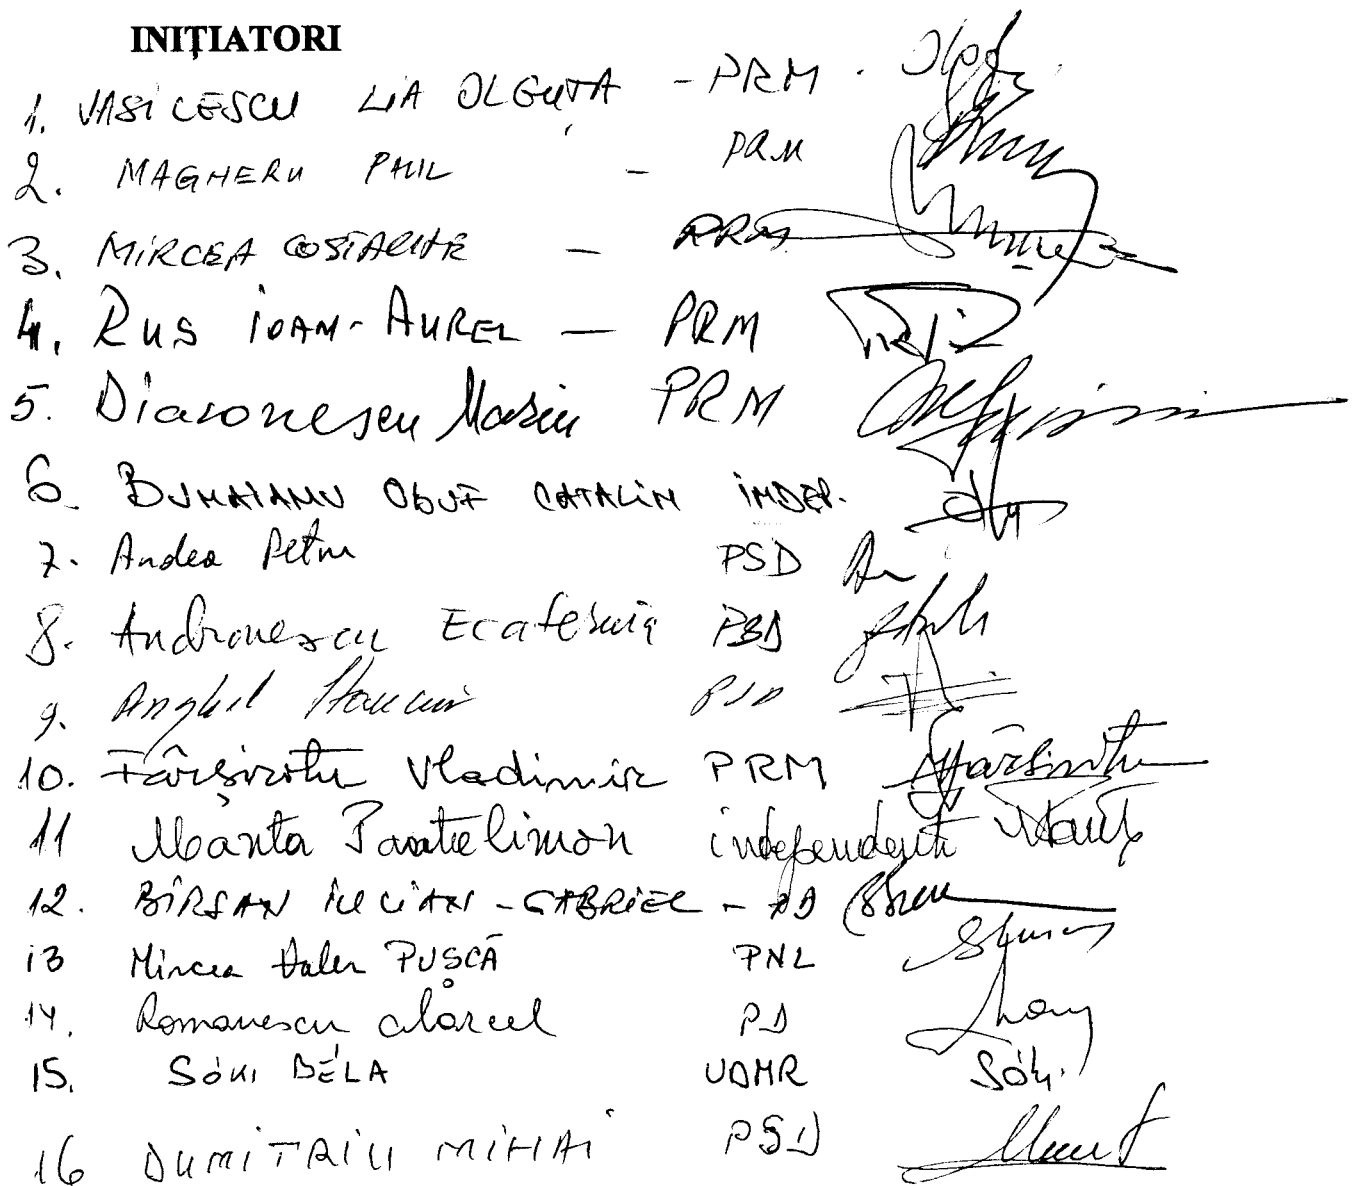 INIȚIATORI
1. VASILESCU LIA OLGUȚA - PRM.
2. MAGHERU PAUL - PRM
3. MIRCEA COSTACHE - PRM
4. RUS IOAN-AUREL - PRM
5. Diaconescu Marin PRM
6. BUHAIANU OBUF CATALIN INDEP.
7. Andea Petru PSD
8. Andronescu Ecaterina PSD
9. Anghel Stanciu PSD
10. Fârșirotu Vladimir PRM Fârșirotu
11 Manta Pantelimon independent Manta
12. BÎRSAN IULIAN-GABRIEL - PD
13 Mircea Valer PUȘCĂ PNL
14. Romanescu Marcel PD
15. SÓKI BÉLA UDMR Sóki
16 DUMITRIU MIHAI PSD